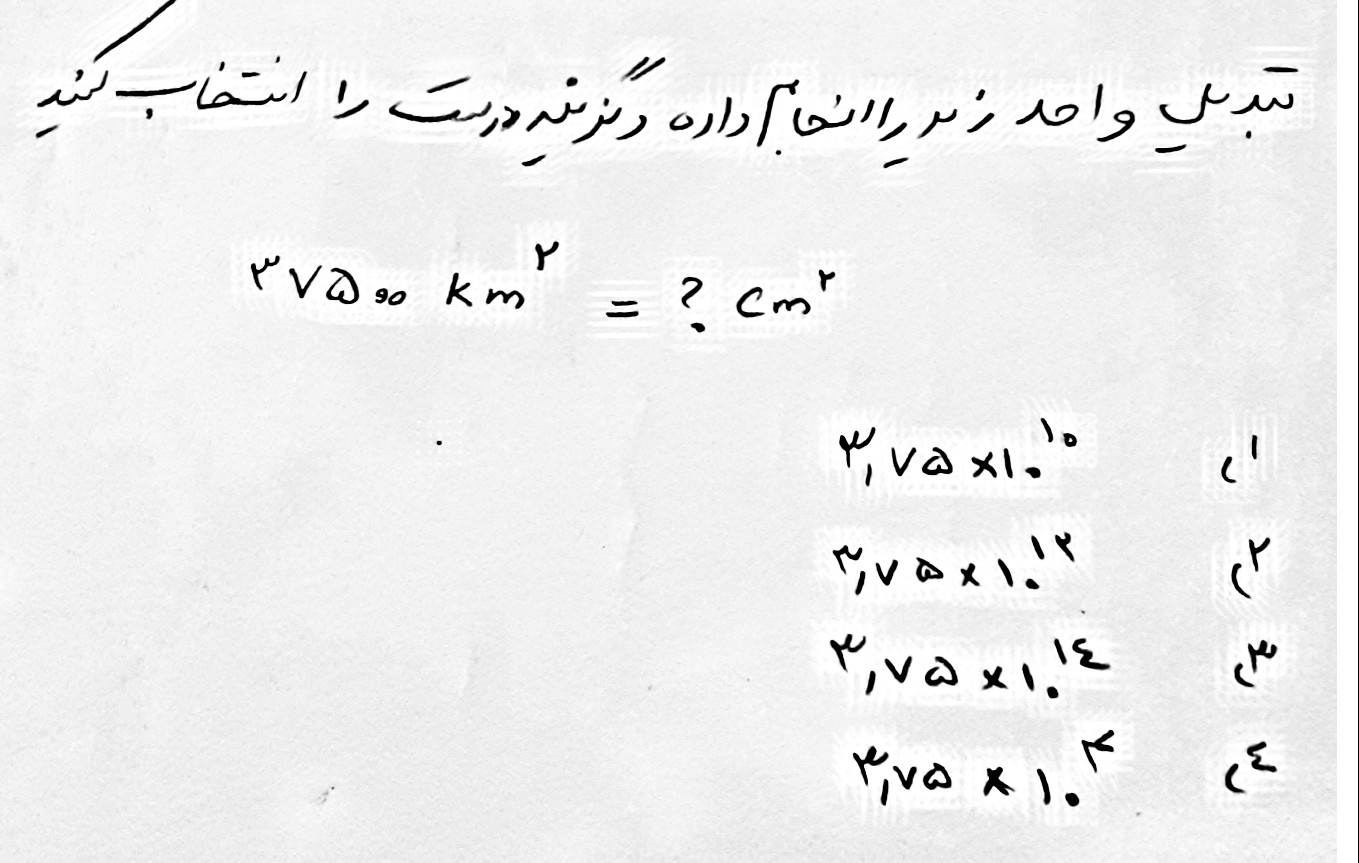 تبدیل واحد زیر را انجام داده و گزینه درست را انتخاب کنید
۳۷۵۰۰ km² = ? cm²
۱) ۳,۷۵ × ۱۰^۱۰
۲) ۳,۷۵ × ۱۰^۱۲
۳) ۳,۷۵ × ۱۰^۱۴
۴) ۳,۷۵ × ۱۰^۳